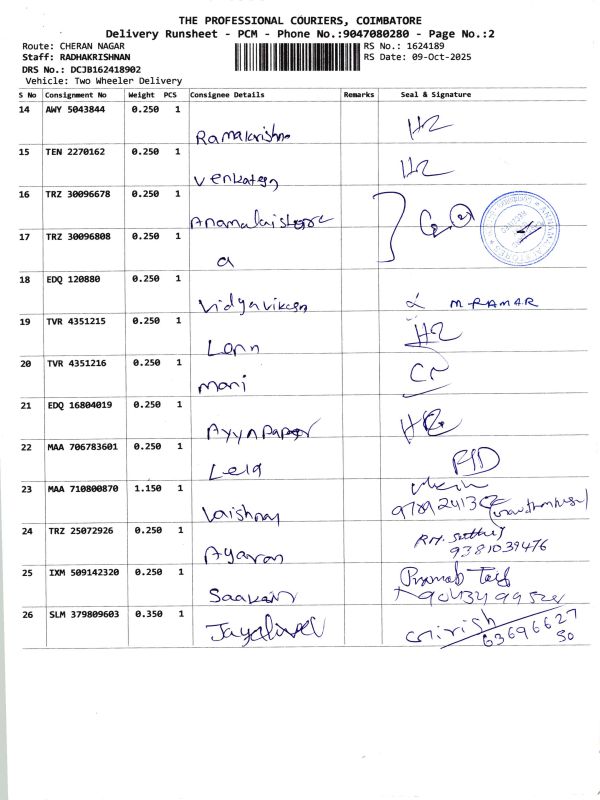 THE PROFESSIONAL COURIERS, COIMBATORE
Delivery Runsheet - PCM - Phone No.:9047080280 - Page No.:2
Route: CHERAN NAGAR RS No.: 1624189
Staff: RADHAKRISHNAN RS Date: 09-Oct-2025
DRS No.: DCJB162418902
Vehicle: Two Wheeler Delivery
S No Consignment No Weight PCS Consignee Details Remarks Seal & Signature
14 AWY 5043844 0.250 1
Ramakrishna
15 TEN 2270162 0.250 1
Venkatesn
16 TRZ 30096678 0.250 1
17 TRZ 30096808 0.250 1
a
18 EDQ 120880 0.250 1
M. RAMAR
19 TVR 4351215 0.250 1
20 TVR 4351216 0.250 1
mani
21 EDQ 16804019 0.250 1
22 MAA 706783601 0.250 1
Lela
23 MAA 710800870 1.150 1
Vaishnay
24 TRZ 25072926 0.250 1
9381039476
25 IXM 509142320 0.250 1
26 SLM 379809603 0.350 1
Girish
63696627
50